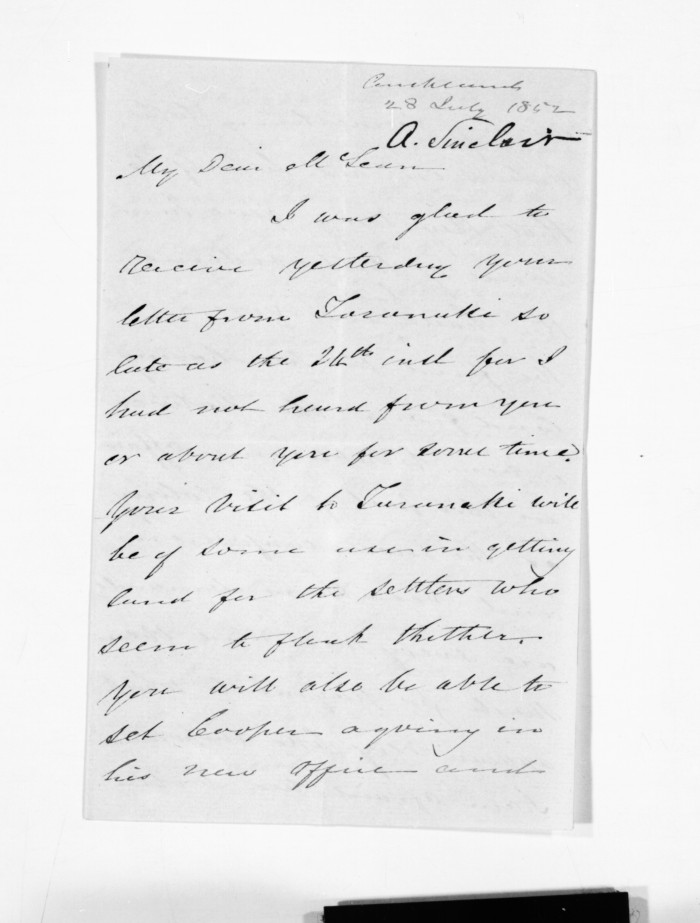 Auckland
28 July 1852
A. Sinclair
My Dear McLean
I was glad to
receive yesterday your
letter from Taranaki so
late as the 24th inst for I
had not heard from you
or about you for some time.
Your visit to Taranaki will
be of some use in getting
land for the settlers who
seem to flock thither.
You will also be able to
set Cooper agoing in
his new office and